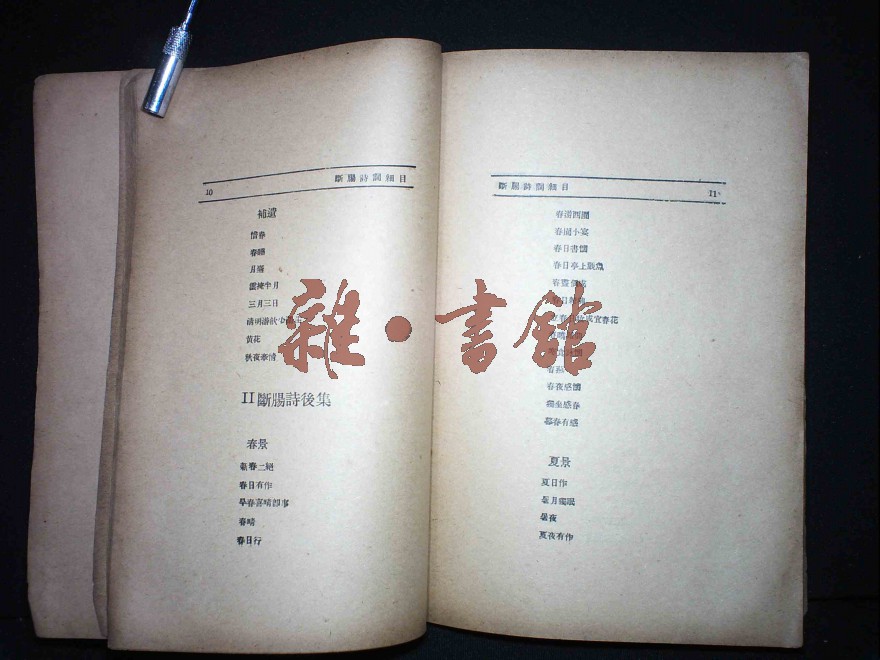 10
斷腸詩詞細目
補遺
惜春
春睡
月臺
雲掩半月
三月三日
清明游飲少湖莊
黃花
秋夜牽情
II 斷腸詩後集
春景
新春二絕
春日有作
早春喜晴即事
春晴
春日行
斷腸詩詞細目
11
春游西園
春園小宴
春日書懷
春日亭上觀魚
春夜感懷
獨坐感春
暮春有感
夏景
夏日作
暑月獨眠
暑夜
夏夜有作
雜·書館